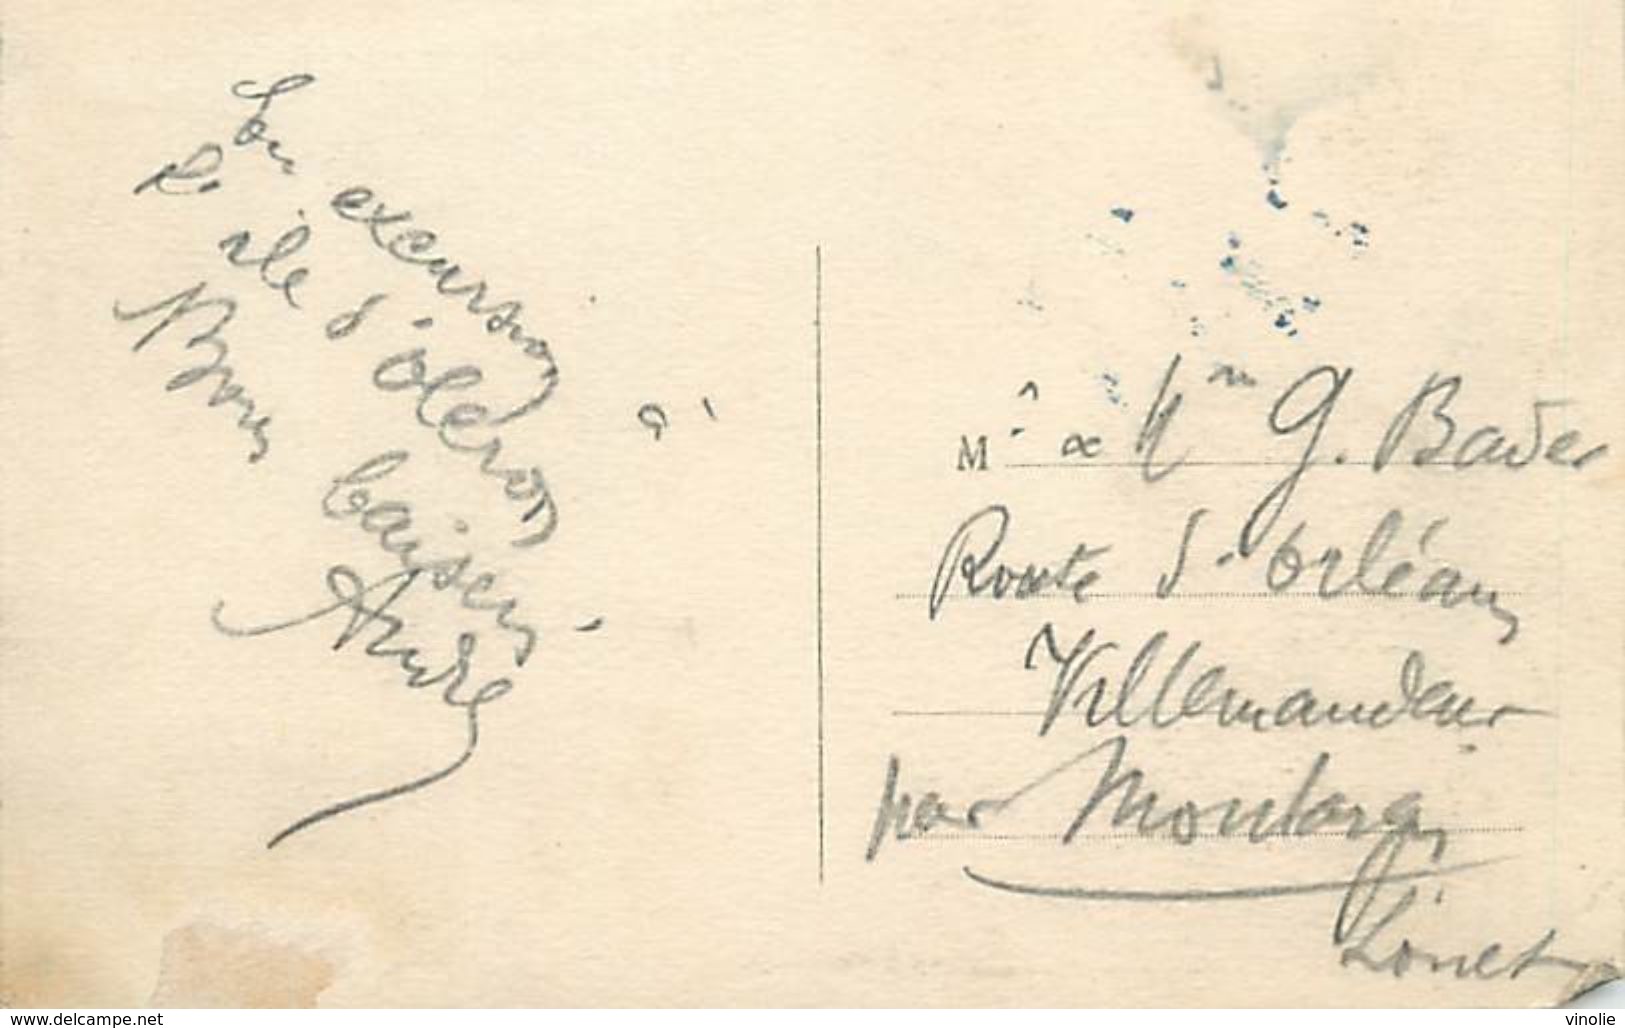 Son excursion à
l'ile d'oleron
Bons baisers
André
M. & Mme G. Bader
Route d'Orléans
Villemandeur
par Montargis
Loiret
www.delcampe.net
vinolie